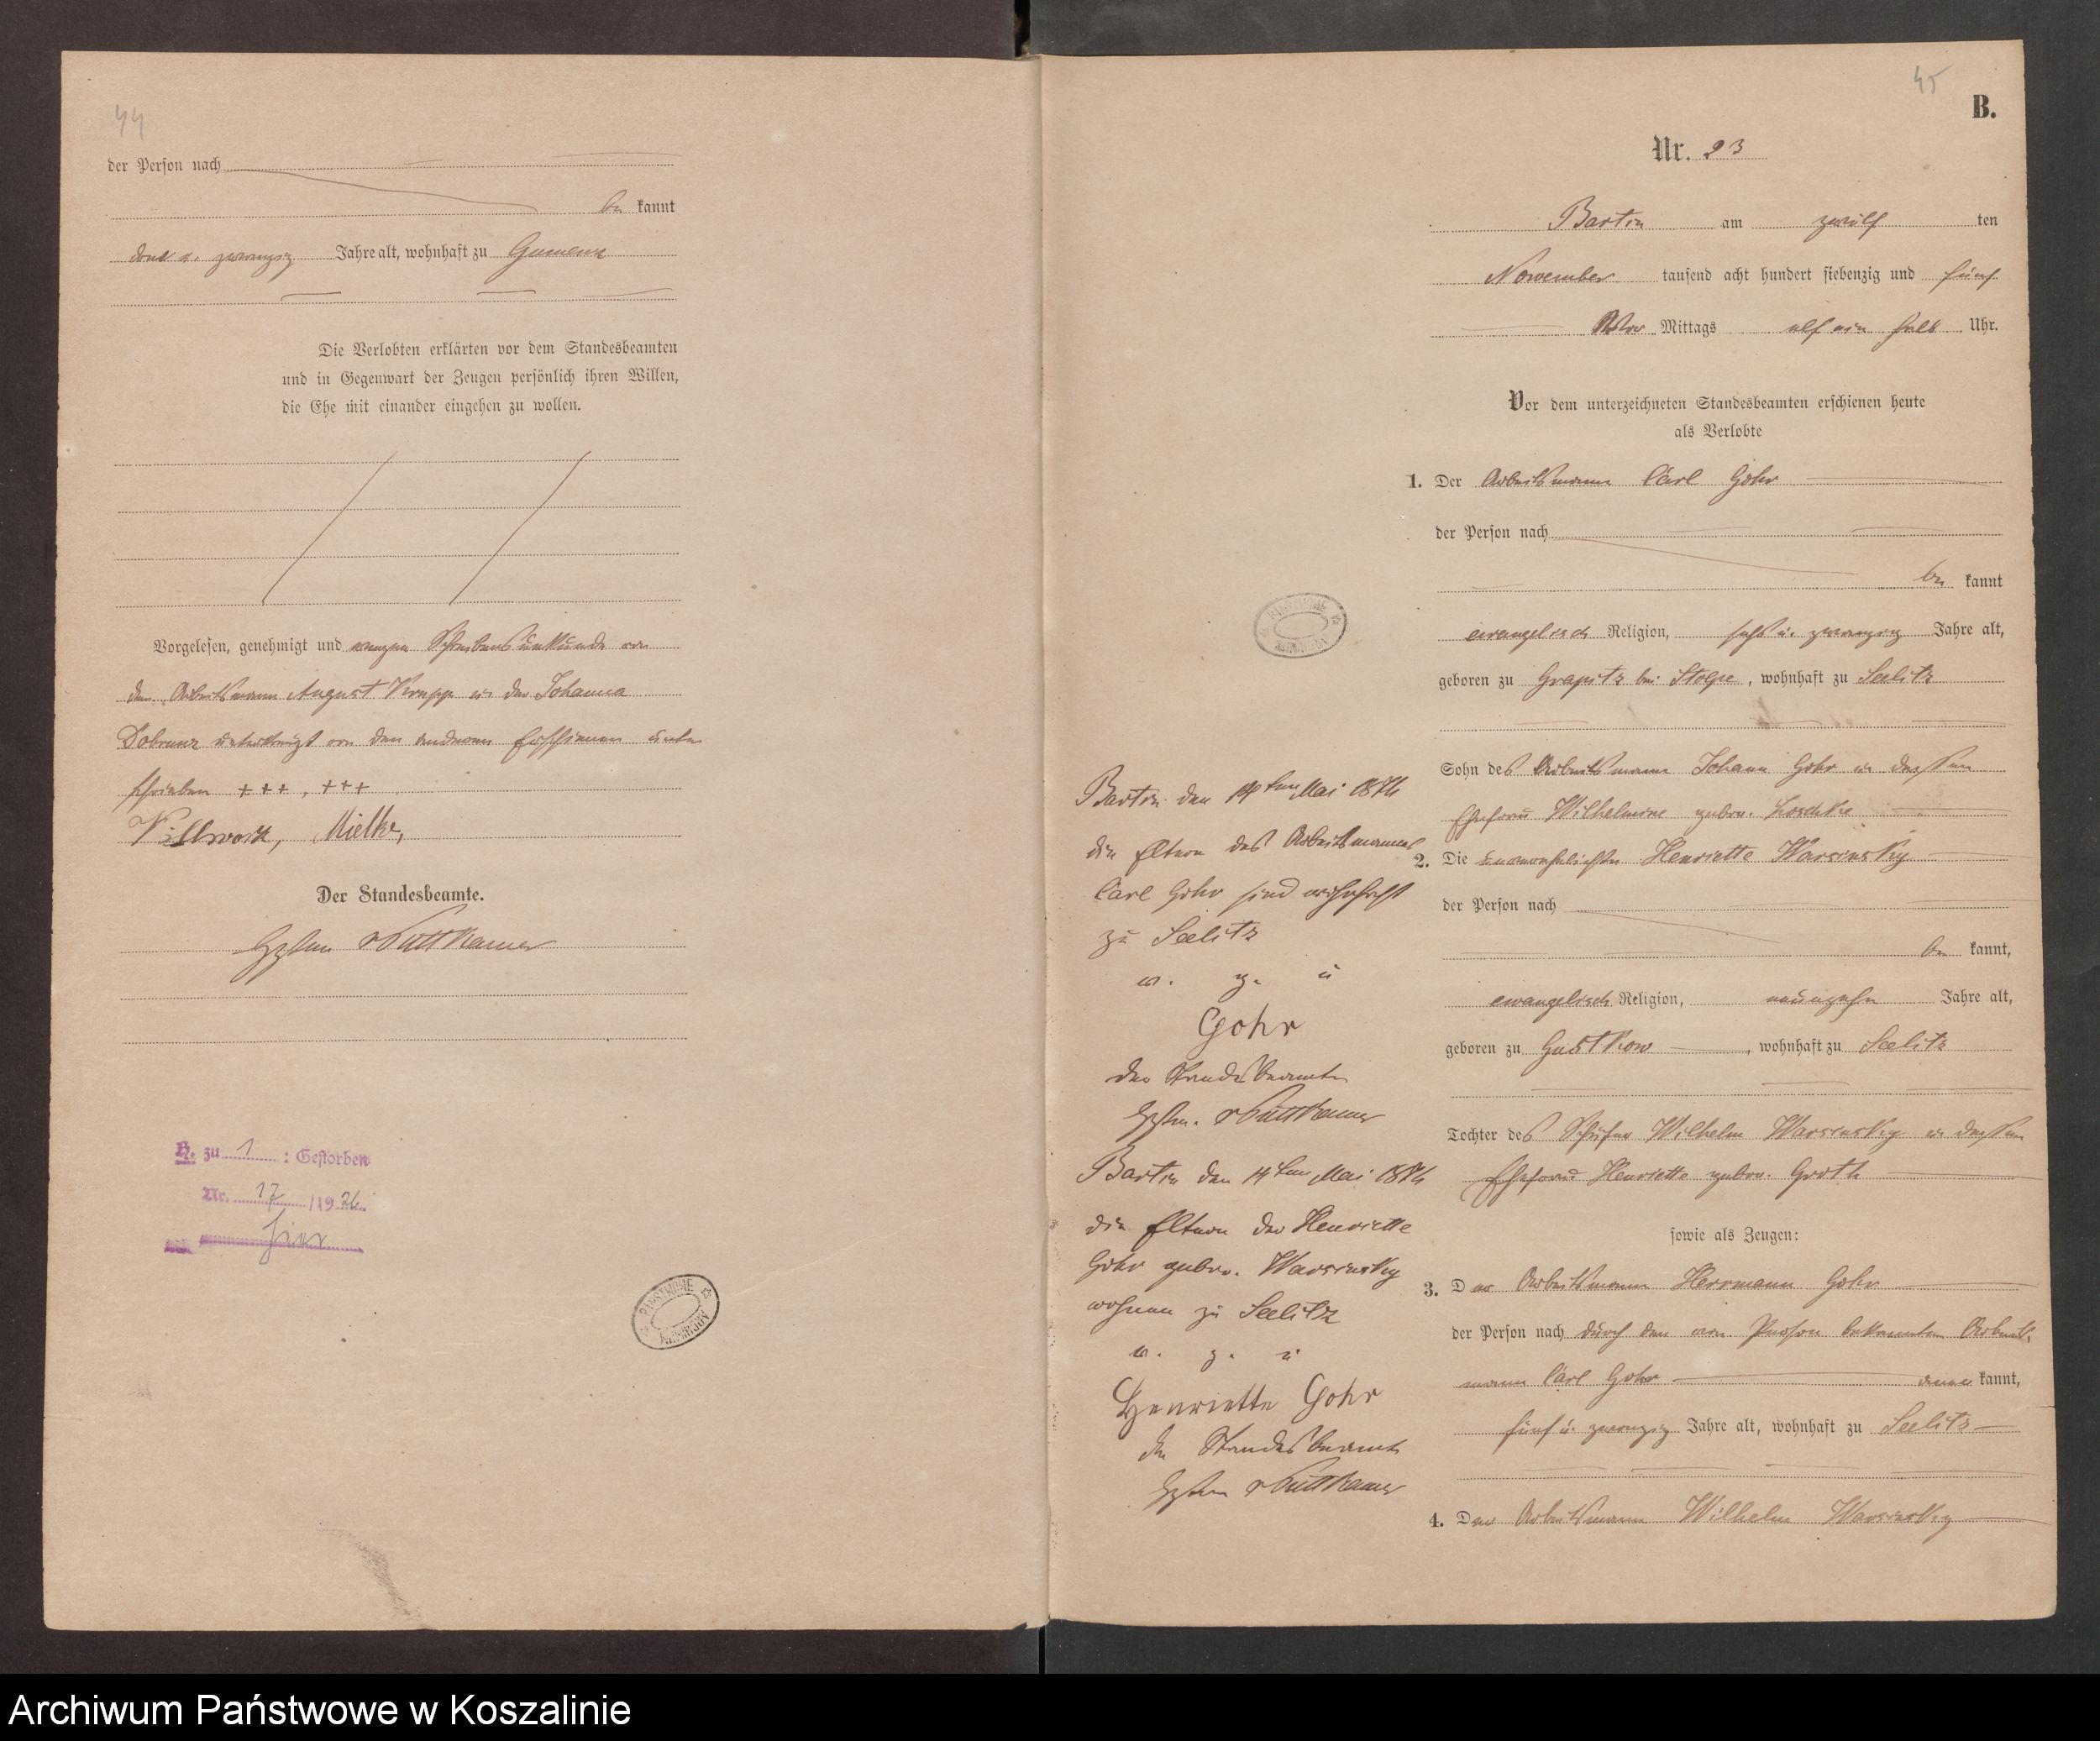 44
der Person nach
be kannt
drei u. zwanzig Jahre alt, wohnhaft zu Gumenz
Die Verlobten erklärten vor dem Standesbeamten
und in Gegenwart der Zeugen persönlich ihren Willen,
die Ehe mit einander eingehen zu wollen.
Vorgelesen, genehmigt und wegen Schreibensunkunde von
dem Arbeitsmann August Krupp u. der Johanna
unterkreuzt von den anderen Erschienen unter
schrieben +++, +++
Villwock, Mielke,
Der Standesbeamte.
vPuttkamer
H. zu 1 : Gestorben
Nr. 17 /1926.
hier
PAŃSTWOWE ARCHIWUM
45
B.
Nr. 23
Bartin am zwölf ten
November tausend acht hundert siebenzig und fünf
Vor Mittags elf ein halb Uhr.
Vor dem unterzeichneten Standesbeamten erschienen heute
als Verlobte
1. Der Arbeitsmann Carl Gohr
der Person nach
be kannt
evangelisch Religion, sechs u. zwanzig Jahre alt,
geboren zu Grapitz bei Stolpe, wohnhaft zu Seelitz
Sohn des Arbeitsmann Johann Gohr u. dessen
Ehefrau Wilhelmine gebor. Loschke
2. Die unverehelichte Henriette Warsinsky
der Person nach
be kannt,
evangelisch Religion, neunzehn Jahre alt,
geboren zu Gustkow, wohnhaft zu Seelitz
Tochter des Schäfer Wilhelm Warsinsky u. dessen
Ehefrau Henriette gebor. Groth
sowie als Zeugen:
3. Der Arbeitsmann Herrmann Gohr
der Person nach durch den von Person bekannten Arbeits-
mann Carl Gohr aner kannt,
fünf u. zwanzig Jahre alt, wohnhaft zu Seelitz
4. Der Arbeitsmann Wilhelm Warsinsky
PAŃSTWOWE ARCHIWUM
Bartin den 14ten Mai 1876
die Eltern des Arbeitsmannes
Carl Gohr sind wohnhaft
zu Seelitz
v. g. u
Gohr
der Standesbeamte
vPuttkamer
Bartin den 14ten Mai 1876
die Eltern der Henriette
Gohr gebor. Warsinsky
wohnen zu Seelitz
v. g. u
Henriette Gohr
der Standesbeamte
vPuttkamer
Archiwum Państwowe w Koszalinie